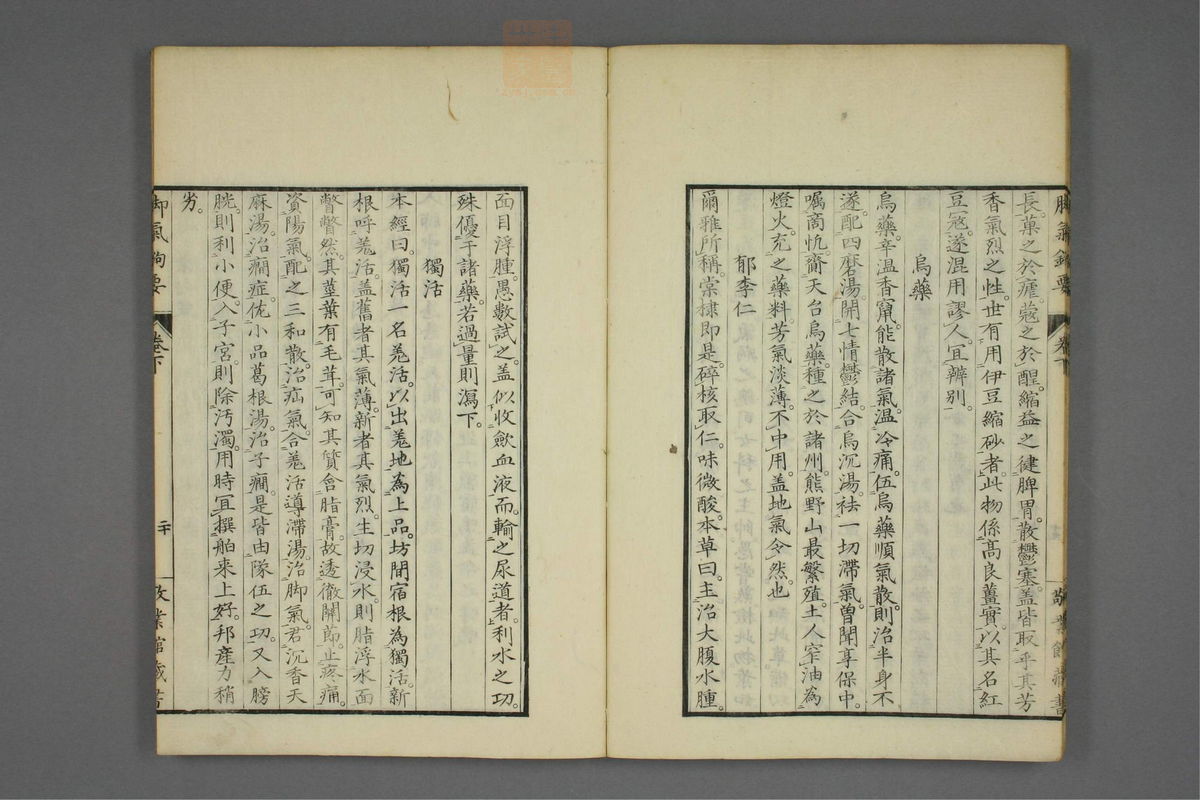 長菓之於瘧蔻之於醒縮益之健脾胃散鬱塞蓋皆取乎其芳
香氣烈之性世有用伊豆縮砂者此物係高良薑實以其名紅
豆寇遂混用謬人宜辨別
烏藥
烏藥辛温香竄能散諸氣温冷痛伍烏藥順氣散則治半身不
遂配四磨湯開七情鬱結合烏沉湯祛一切滯氣曾聞享保中
囑商忨齎天台烏藥種之於諸州熊野山最繁殖土人窄油為
燈火充之藥料芳氣淡薄不中用蓋地氣令然也
郁李仁
爾雅所稱棠棣即是碎核取仁味微酸本草曰主治大腹水腫
面目浮腫愚數試之蓋似收歛血液而輸之尿道者利水之功
殊優于諸藥若過量則瀉下
獨活
本經曰獨活一名羗活以出羗地為上品坊間宿根為獨活新
根呼羗活蓋舊者其氣薄新者其氣烈生切浸水則脂浮水面
瞥瞥然其莖葉有毛茸可知其質含脂膏故透徹關節止疼痛
資陽氣配之三和散治疝氣合羗活導滯湯治脚氣君沉香天
麻湯治癇症佐小品葛根湯治子癇是皆由隊伍之功又入膀
胱則利小便入子宮則除汚濁用時宜撰舶来上好邦産力稍
劣
卷下
二十